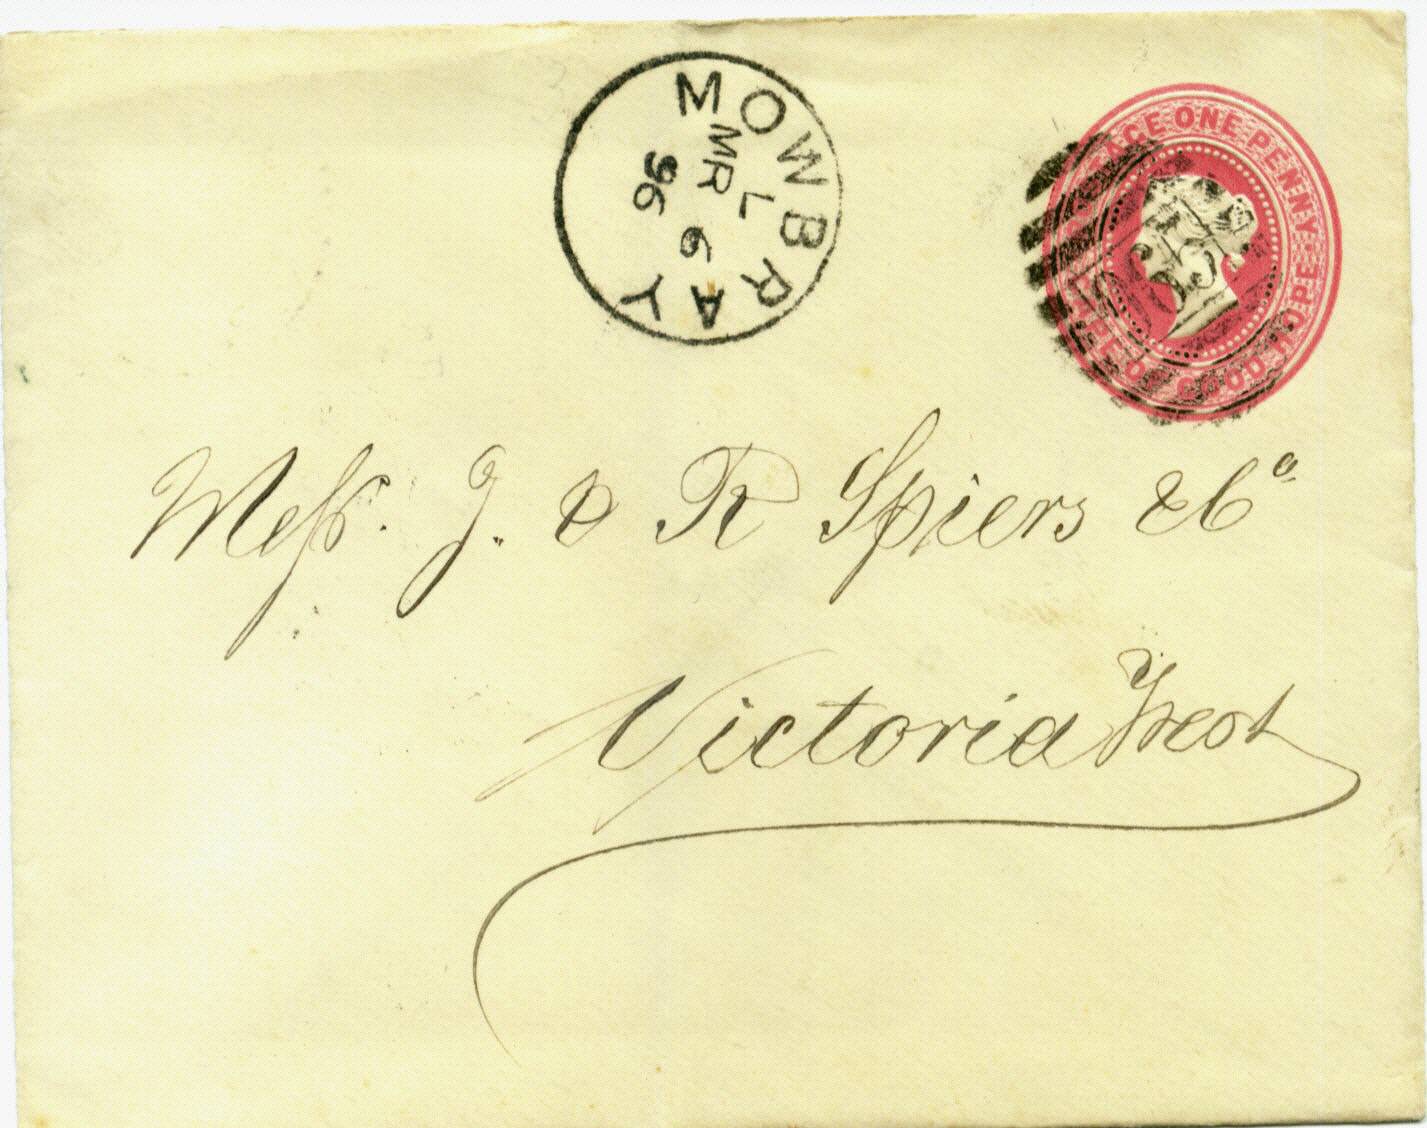 MOWBRAY
L
MR 6
96
POSTAGE ONE PENNY
CAPE OF GOOD HOPE
Messrs. J. & R Spiers & Co
Victoria West